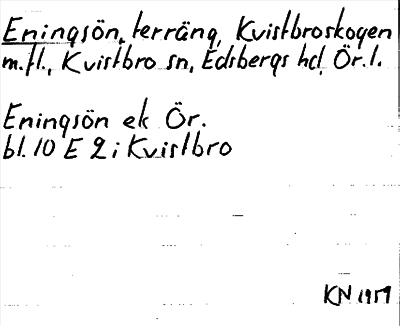 Eningsön, terräng, Kvistbroskogen
m.fl., Kvistbro sn, Edsbergs hd, Ör.l.
Eningsön ek Ör.
bl. 10 E 2 i Kvistbro
KN 1959